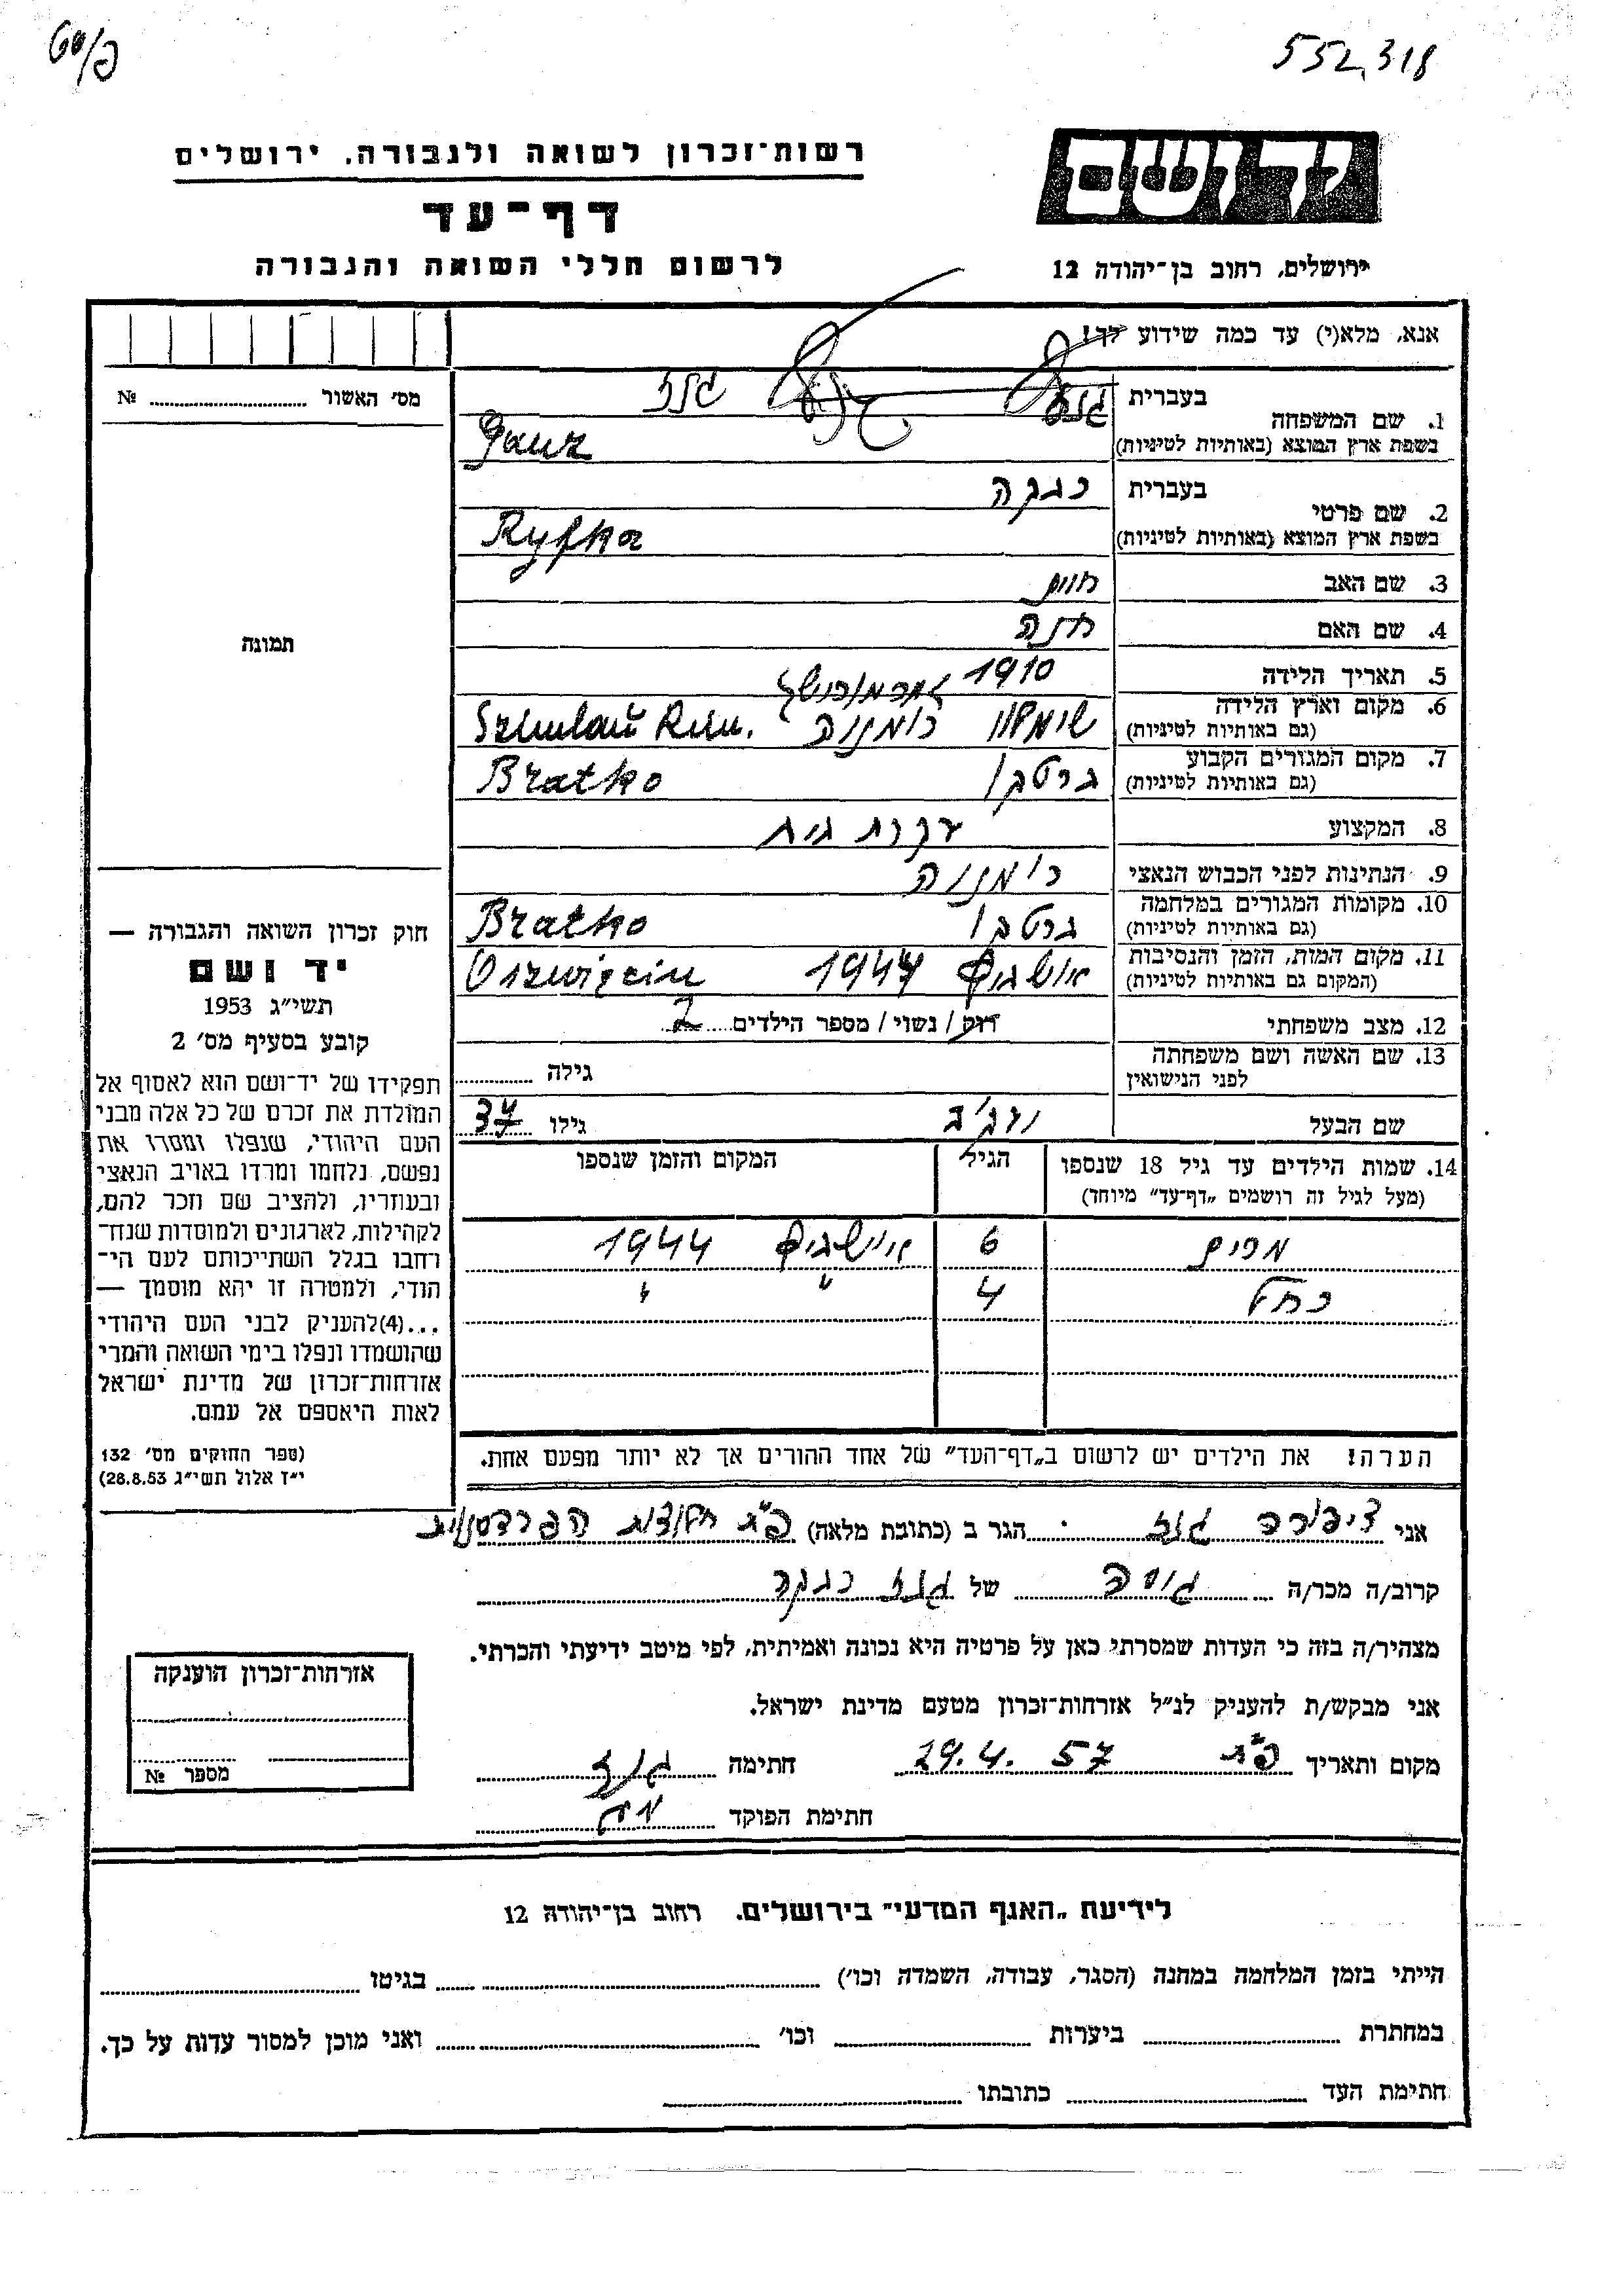 552,318
רשות־זכרון לשואה ולגבורה, ירושלים
יד ושם
דף־עד
לרשום חללי השואה והגבורה
ירושלים, רחוב בן־יהודה 12
אנא, מלא(י) עד כמה שידוע לך!
מס' האשור № ........
1. שם המשפחה בעברית גנז
בשפת ארץ המוצא (באותיות לטיניות) Ganz
2. שם פרטי בעברית רבקה
בשפת ארץ המוצא (באותיות לטיניות) Ryfka
תמונה
3. שם האב חיים
4. שם האם חנה
5. תאריך הלידה 1910
6. מקום וארץ הלידה
(גם באותיות לטיניות) רומניה
7. מקום המגורים הקבוע
(גם באותיות לטיניות) ברטקו Bratko
8. המקצוע עקרת בית
9. הנתינות לפני הכבוש הנאצי רומניה
10. מקומות המגורים במלחמה
(גם באותיות לטיניות) ברטקו Bratko
11. מקום המות, הזמן והנסיבות
(המקום גם באותיות לטיניות) אושביץ 1944 Oszwięcim
12. מצב משפחתי רוק / נשוי / מספר הילדים 2
13. שם האשה ושם משפחתה
לפני הנישואין גילה ........
שם הבעל גילו 37
14. שמות הילדים עד גיל 18 שנספו הגיל המקום והזמן שנספו
(מעל לגיל זה רושמים „דף־עד" מיוחד)
מרים 6 אוישביץ 1944
רחל 4 " "
הערה! את הילדים יש לרשום ב„דף־העד" של אחד ההורים אך לא יותר מפעם אחת.
חוק זכרון השואה והגבורה —
יד ושם
תשי"ג 1953
קובע בסעיף מס' 2
תפקידו של יד־ושם הוא לאסוף אל
המולדת את זכרם של כל אלה מבני
העם היהודי, שנפלו ומסרו את
נפשם, נלחמו ומרדו באויב הנאצי
ובעוזריו, ולהציב שם וזכר להם,
לקהילות, לארגונים ולמוסדות שנח־
רחבו בגלל השתייכותם לעם הי־
הודי, ולמטרה זו יהא מוסמך —
...(4)להעניק לבני העם היהודי
שהושמדו ונפלו בימי השואה והמרי
אזרחות־זכרון של מדינת ישראל
לאות היאספם אל עמם.
(ספר החוקים מס' 132
י"ז אלול תשי"ג 28.8.53)
אני ציפורה גנז הגר ב (כתובת מלאה) פ"ת
קרוב/ה מכר/ה גיסה של גנז רבקה
מצהיר/ה בזה כי העדות שמסרתי כאן על פרטיה היא נכונה ואמיתית, לפי מיטב ידיעתי והכרתי.
אני מבקש/ת להעניק לנ"ל אזרחות־זכרון מטעם מדינת ישראל.
מקום ותאריך פ"ת 29.4.57 חתימה גנז
חתימת הפוקד
אזרחות־זכרון הוענקה
מספר №
לידיעת „האגף המדעי" בירושלים. רחוב בן־יהודה 12
הייתי בזמן המלחמה במחנה (הסגר, עבודה, השמדה וכו') ........ בגיטו ........
במחתרת ........ ביערות ........ וכו' ........ ואני מוכן למסור עדות על כך.
חתימת העד ........ כתובתו ........